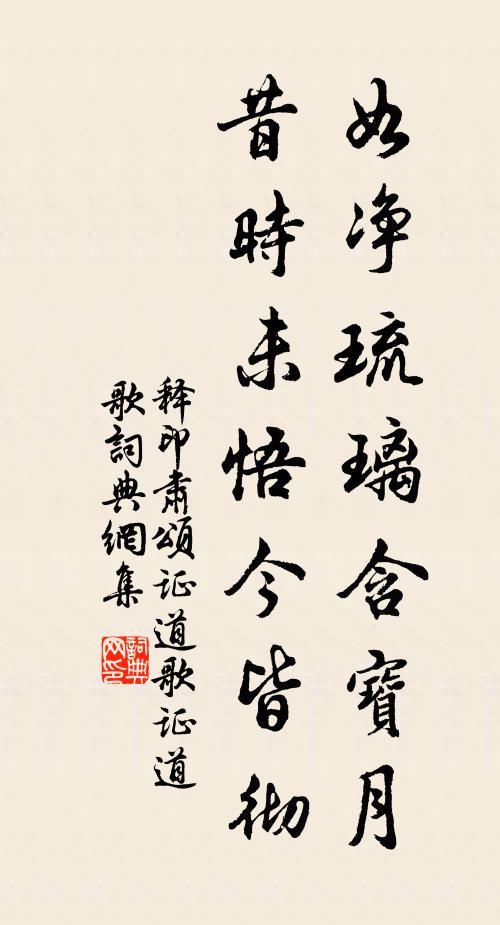 如净琉璃含寶月
昔時未悟今皆彻
释印肃頌证道歌证道
歌詞典網集
詞典
网印